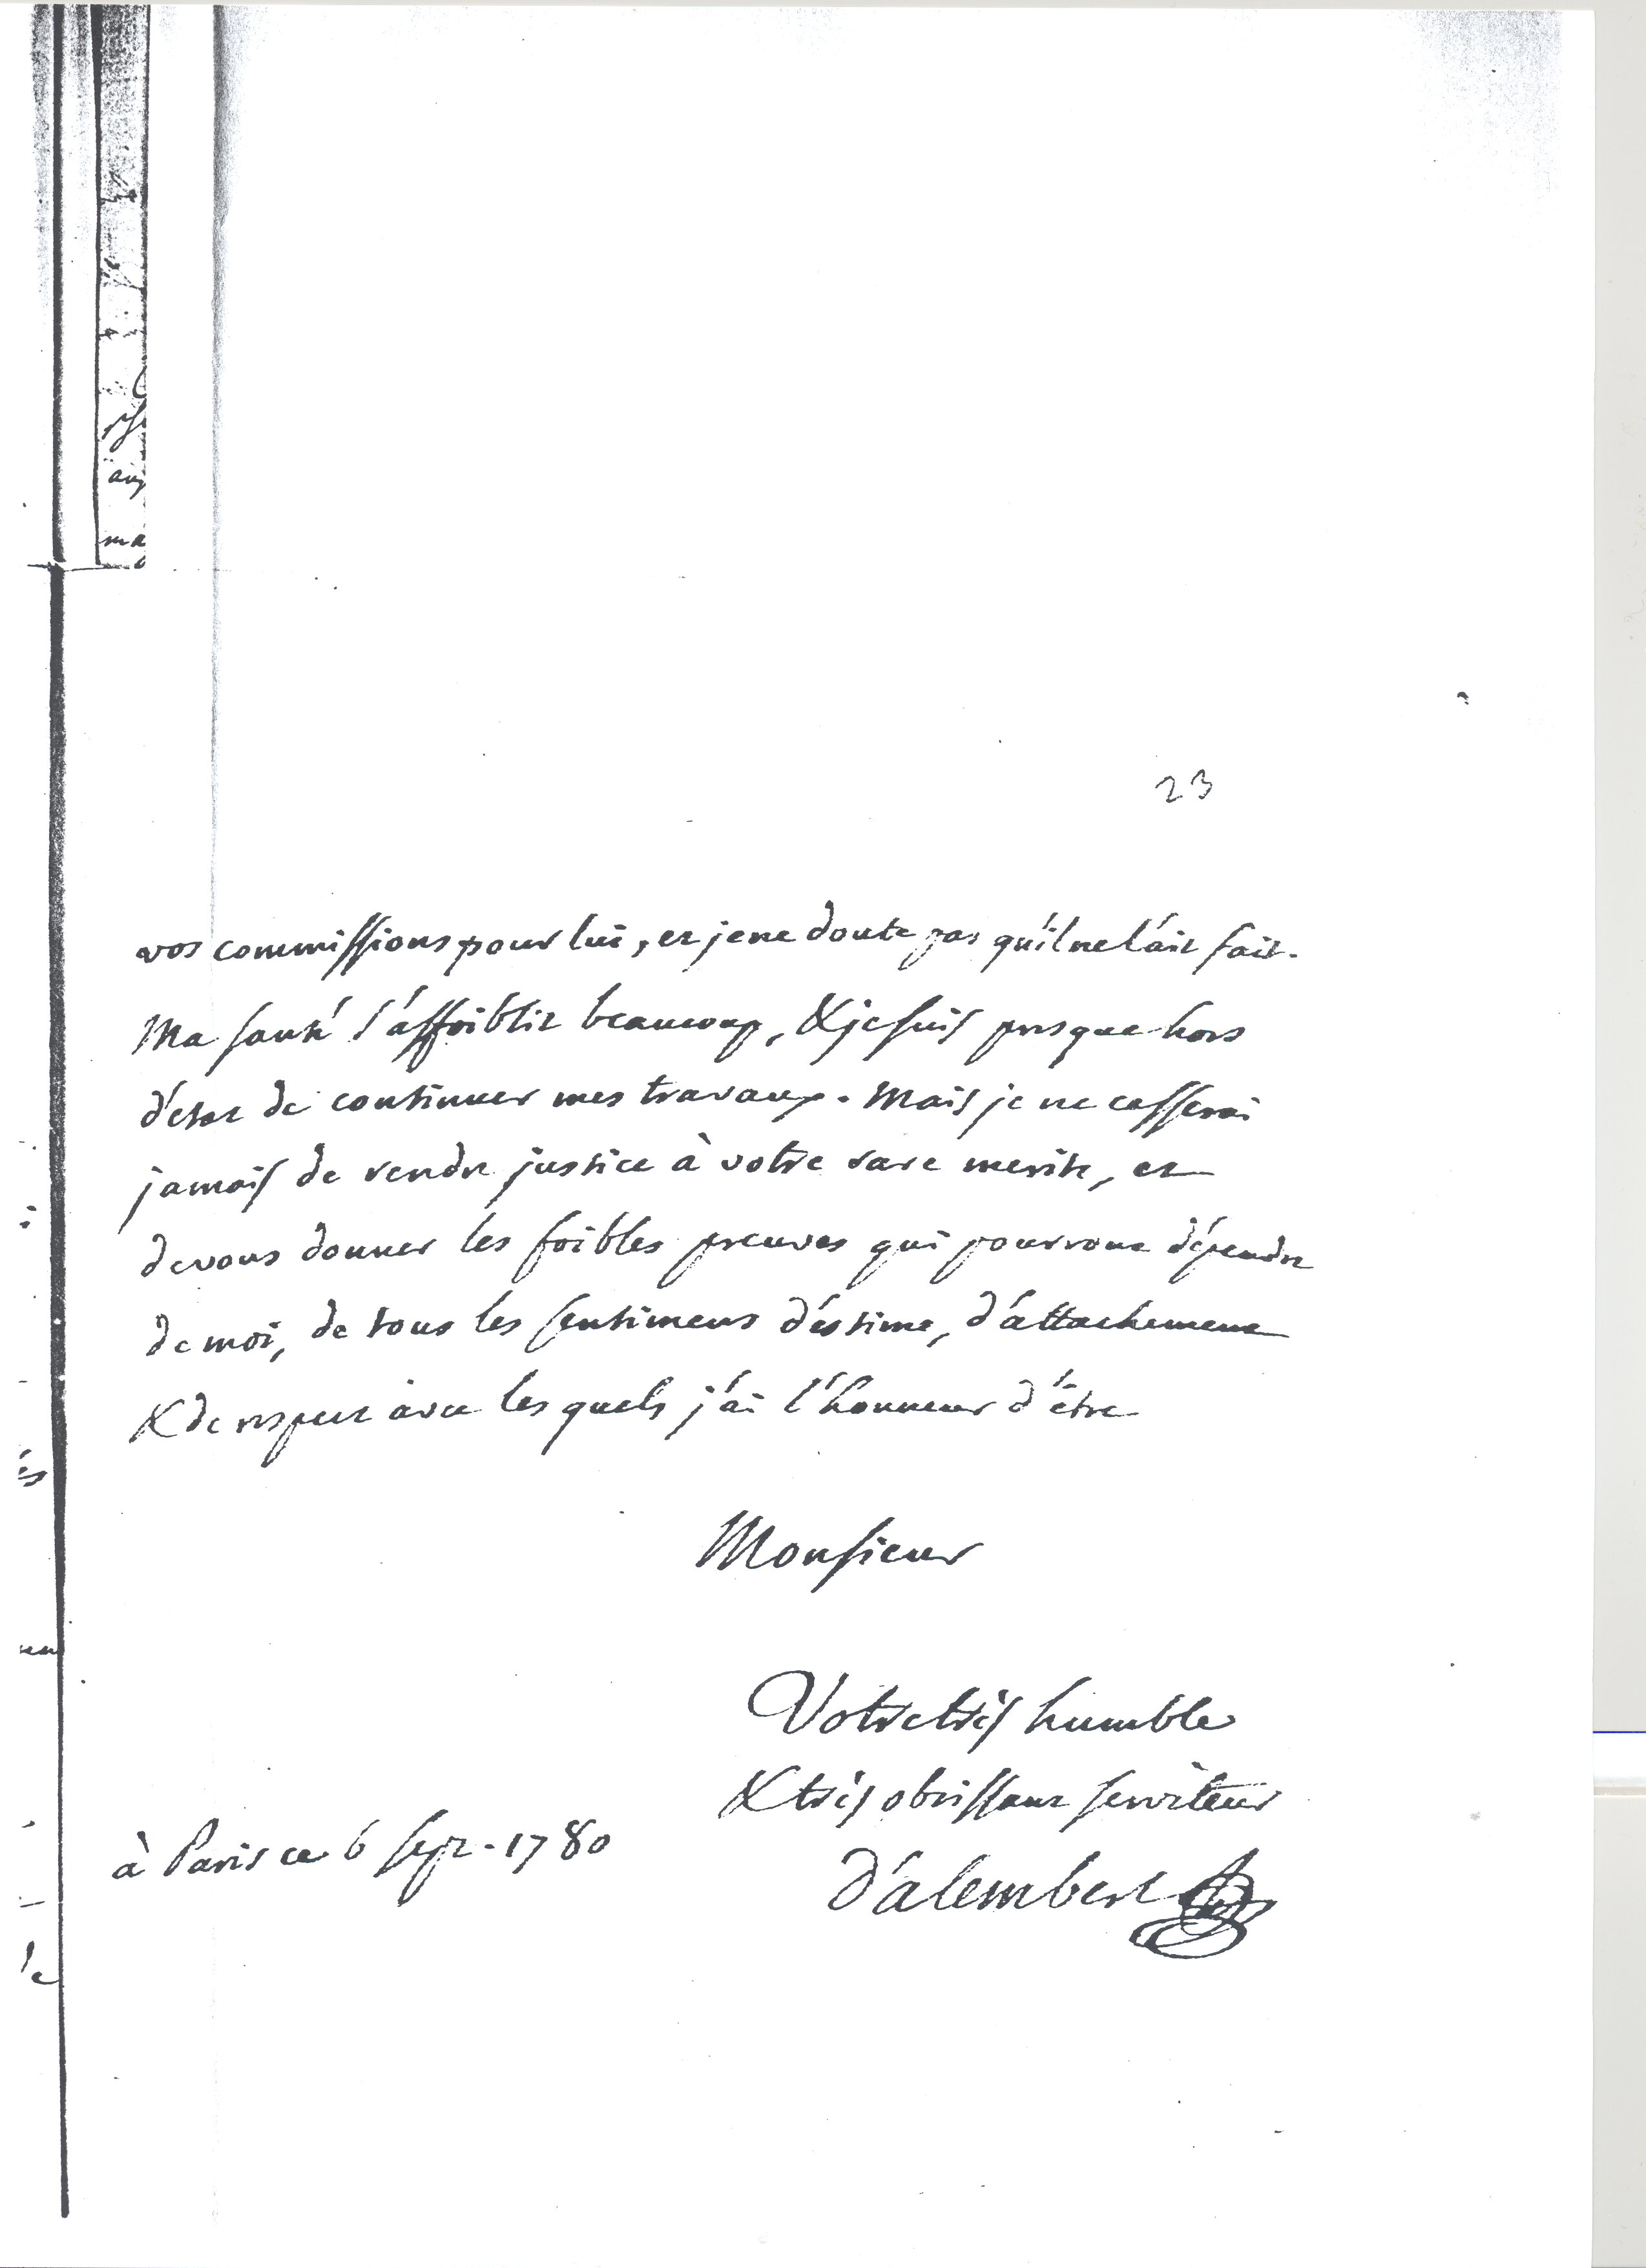 23
vos commissions pour lui, et je ne doute pas qu'il ne l'ait fait.
Ma santé s'affoiblit beaucoup, & je suis presque hors
d'etat de continuer mes travaux. Mais je ne cesserai
jamais de rendre justice à votre rare merite, et
de vous donner les foibles preuves qui pourront dépendre
de moi, de tous les sentimens d'estime, d'attachement
& de respect avec les quels j'ai l'honneur d'être
Monsieur
Votre très humble
& très obeissant serviteur
à Paris ce 6 sept. 1780
d'alembert